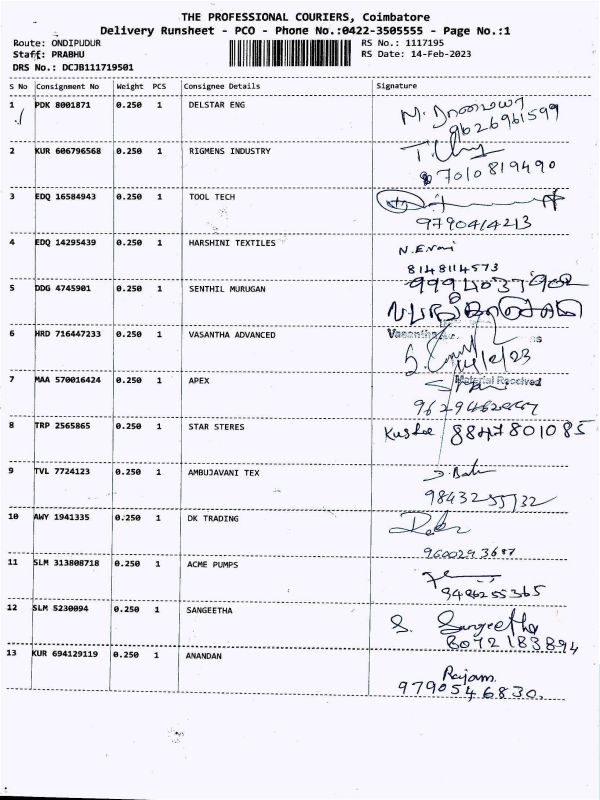 THE PROFESSIONAL COURIERS, Coimbatore
Delivery Runsheet - PCO - Phone No.:0422-3505555 - Page No.:1
Route: ONDIPUDUR RS No.: 1117195
Staff: PRABHU RS Date: 14-Feb-2023
DRS No.: DCJB111719501
S No Consignment No Weight PCS Consignee Details Signature
1 PDK 8001871 0.250 1 DELSTAR ENG
9626961599
2 KUR 606796568 0.250 1 RIGMENS INDUSTRY
7010819490
3 EDQ 16584943 0.250 1 TOOL TECH
9790414213
4 EDQ 14295439 0.250 1 HARSHINI TEXTILES
8148114573
5 DDG 4745901 0.250 1 SENTHIL MURUGAN
6 HRD 716447233 0.250 1 VASANTHA ADVANCED
14/2/23
7 MAA 570016424 0.250 1 APEX
Material Received
8 TRP 2565865 0.250 1 STAR STERES
8847801085
9 TVL 7724123 0.250 1 AMBUJAVANI TEX
10 AWY 1941335 0.250 1 DK TRADING
11 SLM 313808718 0.250 1 ACME PUMPS
9486255365
12 SLM 5230094 0.250 1 SANGEETHA
S. Sangeetha
8072183894
13 KUR 694129119 0.250 1 ANANDAN
Rajam
9790546830.